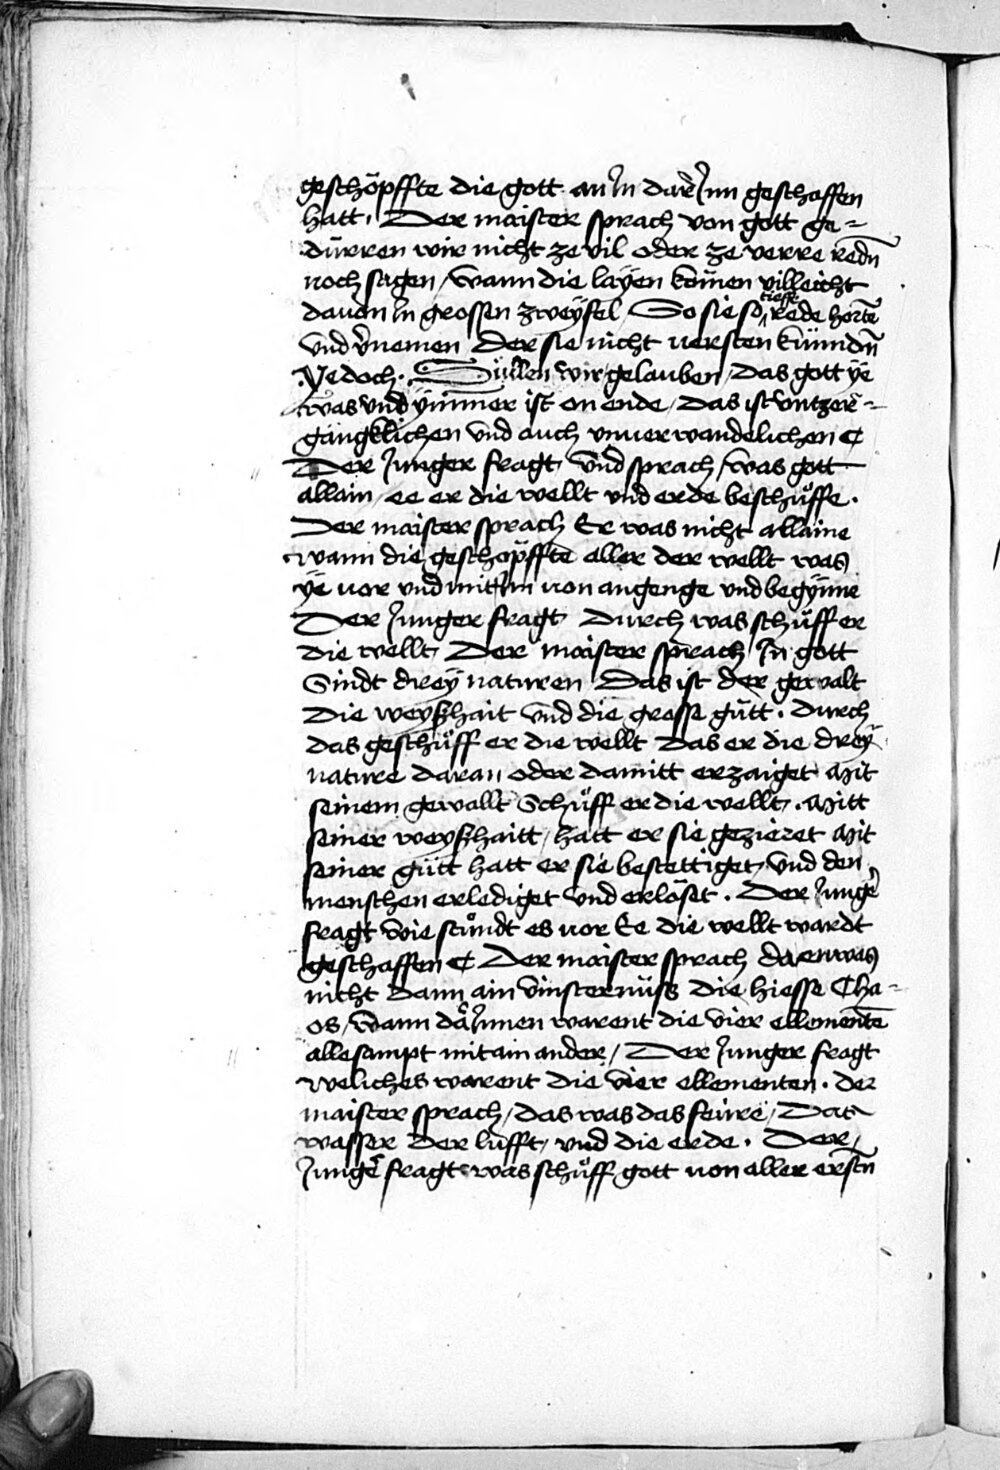 geschöpffte die gott an In dar Inn geschaffen
hatt. Der maister sprach von gott ge-
dürren wir nicht ze vil oder ze verre redn̄
noch sagen / wann die layen komen villeicht
dauon In grossen zweyfel / So sie so tieffe rede hortē
vnd v̄nemen Der sie nicht uersten kunndn̄
.Yedoch. Süllen wir gelauben / Das gott ÿe
was vnd ÿmmer ist on ende / Das ist vntzer-
gangklichen vnd auch vnuerwandelichen
Der Junger fragt vnd sprach / was gott
allain / ee er die wellt vnd erde beschůffe.
Der maister sprach Er was nicht allaine
wann die geschöpffte aller der wellt was
ÿe uor vnd mit Im uon angenge vnd begynne
Der Junger fragt Durch was schůff er
die wellt Der maister sprach In gott
Sindt dreÿ naturen Das ist der gewalt
Die weyßhait vnd die grosse gütt. Durch
das geschůff er die wellt Das er die dreÿ
nature daran oder damitt erzaiget Mit
seinem gewallt Schůff er die wellt. Mitt
seiner weyßhaitt / hatt er sie gezieret Mit
seiner gütt hatt er sie bestettiget / vnd den
menschen erlediget vnd erlöset. Der Jungẽ
fragt wie stůndt es uor Ee die wellt wardt
geschaffen Der maister sprach da enwas
nicht Dann ain vinsternüss die hiesse Cha-
os / wann da Innen warent die vier ellementē
allesampt mit ain ander / Der Junger fragt
weliches warent die vier ellementen. der
maister sprach / das was das feüre / Das
wasser Der lufft / vnd die erde. Der
Jungẽ fragt was schůff gott uon aller erstn̄